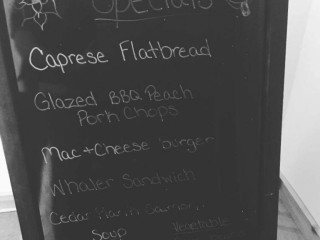 Specials
Caprese Flatbread
Glazed BBQ Peach
Pork Chops
Mac + Cheese Burger
Whaler Sandwich
Cedar Plank Salmon
Soup Vegetable